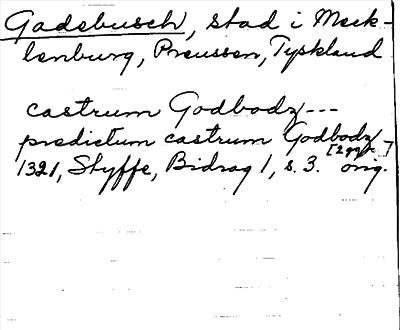 Gadebusch, stad i Meck-
lenburg, Preussen, Tyskland
castrum Godbodz ---
predictum castrum Godbodz
1321, Styffe, Bidrag 1, s. 3. [2 ggr] orig.